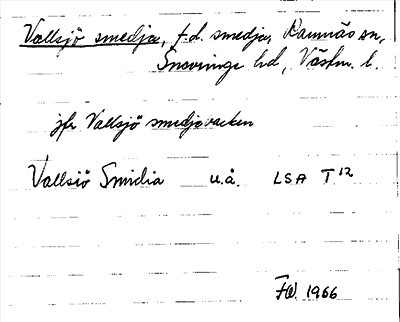 Vallsjö smedja, f.d. smedja, Ramnäs sn,
Snevringe hd, Västm. l.
jfr Vallsjö smedjebacken
Vallsiö Smidia u.å. LSA T12
FW. 1966